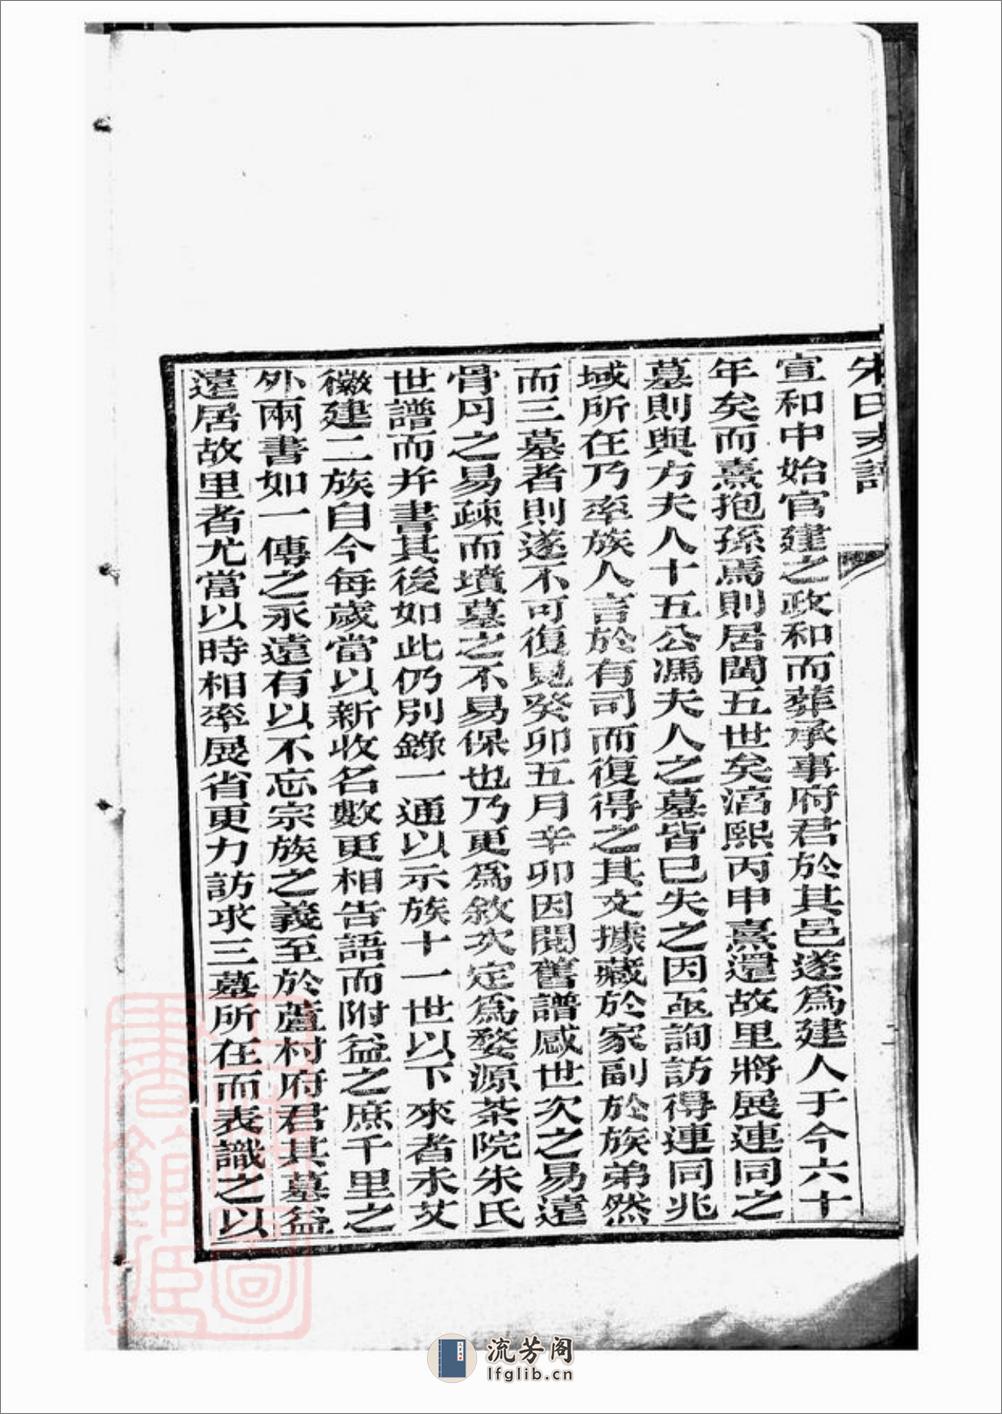 朱氏支譜
宣和中始官建之政和而葬承事府君於其邑遂爲建人于今六十
年矣而熹抱孫焉則居閩五世矣淳熙丙申熹還故里將展連同之
墓則與方夫人十五公馮夫人之墓皆已失之因亟詢訪得連同兆
域所在乃率族人言於有司而復得之其文據藏於家副於族弟然
而三墓者則遂不可復見癸卯五月辛卯因閱舊譜感世次之易遠
骨肉之易疎而墳墓之不易保也乃更爲敘次定爲婺源茶院朱氏
世譜而并書其後如此仍別錄一通以示族十一世以下來者未艾
徽建二族自今每歲當以新收名數更相告語而附益之庶千里之
外兩書如一傳之永遠有以不忘宗族之義至於蘆村府君其墓益
遠居故里者尤當以時相率展省更力訪求三墓所在而表識之以
流芳阁
lfglib.cn